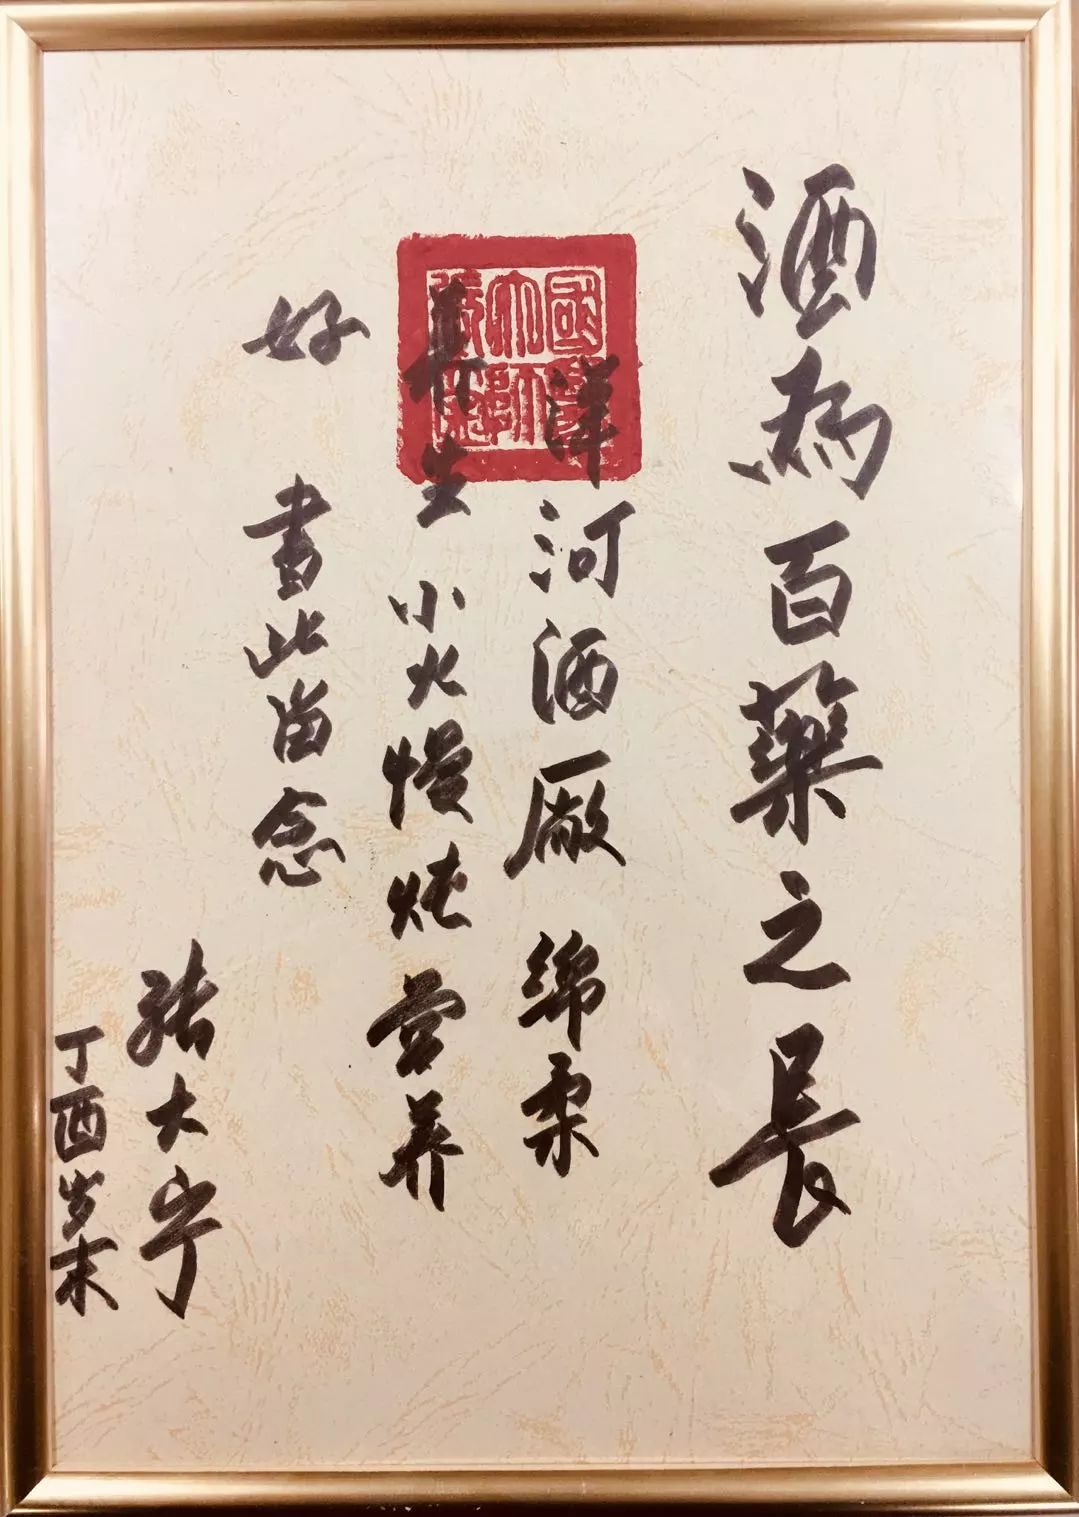 酒为百藥之长
洋河酒廠 绵柔
养生 小火慢炖 营养
好 書此留念
张大宁
丁酉岁末
國醫大師張大寧